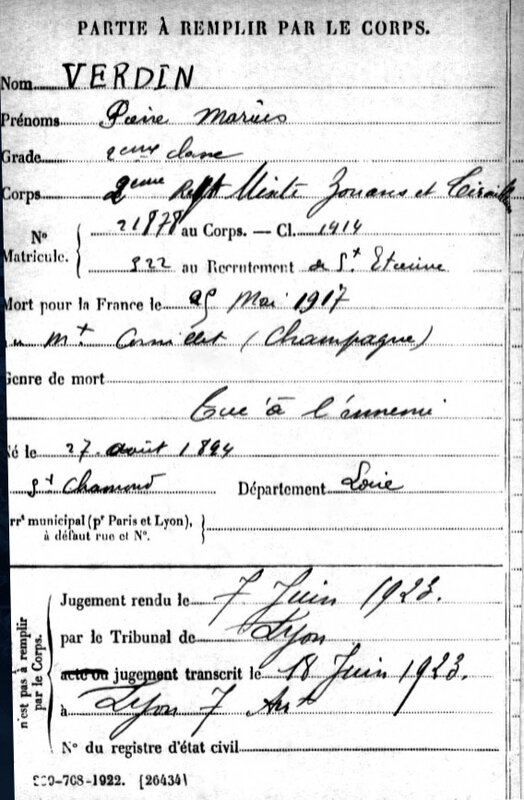 PARTIE À REMPLIR PAR LE CORPS.
Nom VERDIN
Prénoms Pierre Marius
Grade 2eme classe
Corps 2eme Regt Mixte Zouaves et Tiraill
N° 21878 au Corps. — Cl. 1914
Matricule. 322 au Recrutement de St Etienne
Mort pour la France le 25 Mai 1917
Mt Cornillet (Champagne)
Genre de mort
Tué à l'ennemi
Né le 27 août 1894
St Chamond Département Loire
arrt municipal (pr Paris et Lyon),
à défaut rue et N°.
n'est pas à remplir par le Corps.
Jugement rendu le 7 Juin 1923.
par le Tribunal de Lyon
acte ou jugement transcrit le 18 Juin 1923.
à Lyon 7 Art
N° du registre d'état civil
-708-1922. [26434]